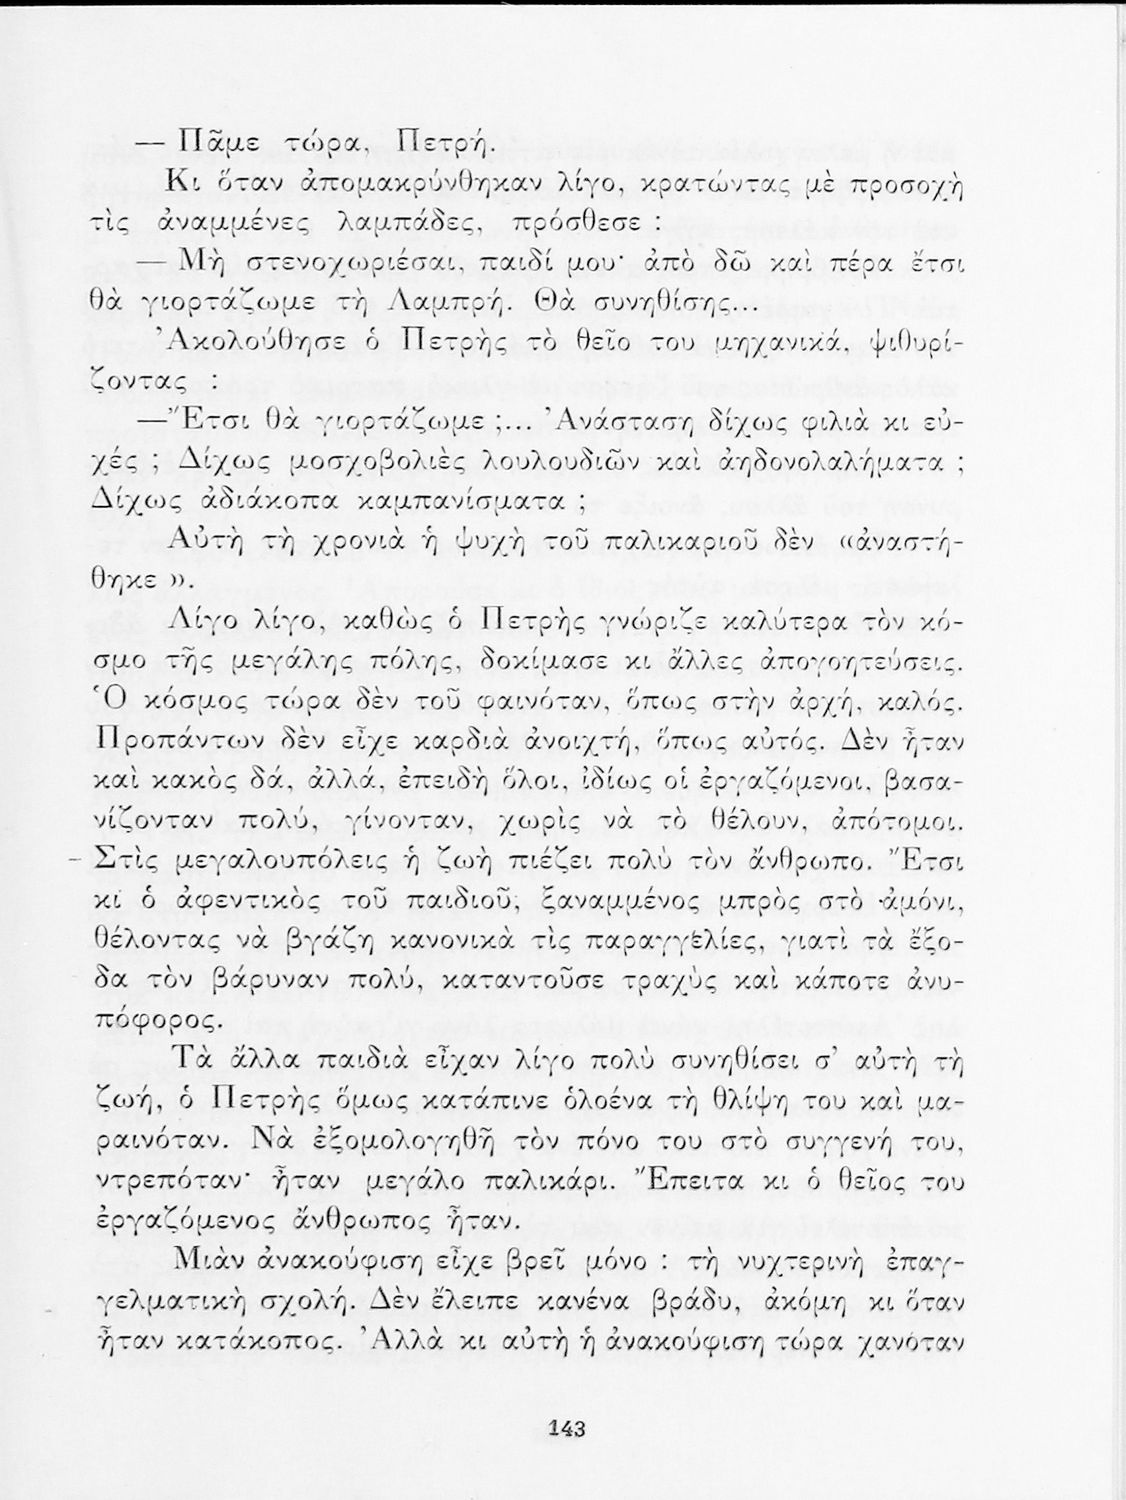 — Πᾶμε τώρα, Πετρή.
Κι ὅταν ἀπομακρύνθηκαν λίγο, κρατώντας μὲ προσοχὴ
τὶς ἀναμμένες λαμπάδες, πρόσθεσε :
— Μὴ στενοχωριέσαι, παιδί μου· ἀπὸ δῶ καὶ πέρα ἔτσι
θὰ γιορτάζωμε τὴ Λαμπρή. Θὰ συνηθίσης...
Ἀκολούθησε ὁ Πετρὴς τὸ θεῖο του μηχανικά, ψιθυρί-
ζοντας :
—Ἔτσι θὰ γιορτάζωμε ;... Ἀνάσταση δίχως φιλιὰ κι εὐ-
χές ; Δίχως μοσχοβολιὲς λουλουδιῶν καὶ ἀηδονολαλήματα ;
Δίχως ἀδιάκοπα καμπανίσματα ;
Αὐτὴ τὴ χρονιὰ ἡ ψυχὴ τοῦ παλικαριοῦ δὲν «ἀναστή-
θηκε ».
Λίγο λίγο, καθὼς ὁ Πετρὴς γνώριζε καλύτερα τὸν κό-
σμο τῆς μεγάλης πόλης, δοκίμασε κι ἄλλες ἀπογοητεύσεις.
Ὁ κόσμος τώρα δὲν τοῦ φαινόταν, ὅπως στὴν ἀρχή, καλός.
Προπάντων δὲν εἶχε καρδιὰ ἀνοιχτή, ὅπως αὐτός. Δὲν ἦταν
καὶ κακὸς δά, ἀλλά, ἐπειδὴ ὅλοι, ἰδίως οἱ ἐργαζόμενοι, βασα-
νίζονταν πολύ, γίνονταν, χωρὶς νὰ τὸ θέλουν, ἀπότομοι.
Στὶς μεγαλουπόλεις ἡ ζωὴ πιέζει πολὺ τὸν ἄνθρωπο. Ἔτσι
κι ὁ ἀφεντικὸς τοῦ παιδιοῦ, ξαναμμένος μπρὸς στὸ ἀμόνι,
θέλοντας νὰ βγάζη κανονικὰ τὶς παραγγελίες, γιατὶ τὰ ἔξο-
δα τὸν βάρυναν πολύ, καταντοῦσε τραχὺς καὶ κάποτε ἀνυ-
πόφορος.
Τὰ ἄλλα παιδιὰ εἶχαν λίγο πολὺ συνηθίσει σ’ αὐτὴ τὴ
ζωή, ὁ Πετρὴς ὅμως κατάπινε ὁλοένα τὴ θλίψη του καὶ μα-
ραινόταν. Νὰ ἐξομολογηθῆ τὸν πόνο του στὸ συγγενή του,
ντρεπόταν· ἦταν μεγάλο παλικάρι. Ἔπειτα κι ὁ θεῖος του
ἐργαζόμενος ἄνθρωπος ἦταν.
Μιὰν ἀνακούφιση εἶχε βρεῖ μόνο : τὴ νυχτερινὴ ἐπαγ-
γελματικὴ σχολή. Δὲν ἔλειπε κανένα βράδυ, ἀκόμη κι ὅταν
ἦταν κατάκοπος. Ἀλλὰ κι αὐτὴ ἡ ἀνακούφιση τώρα χανόταν
143